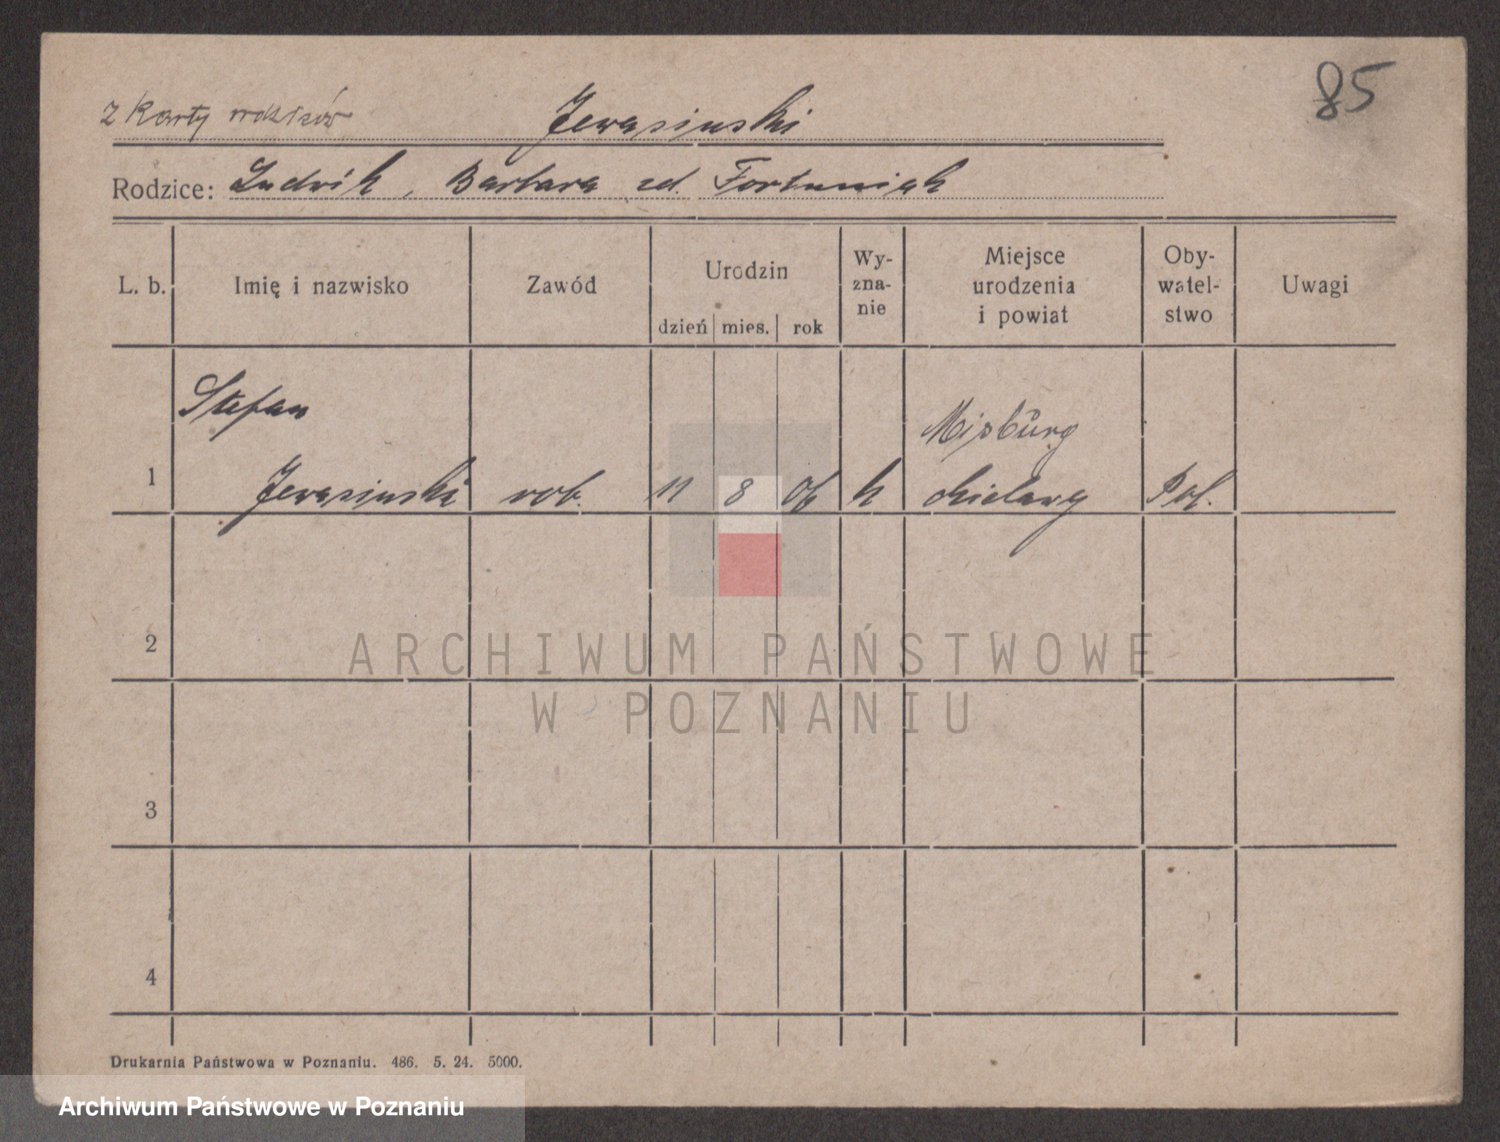 85
z Karty rodziców
Jerąsiński
Rodzice: Ludwik, Barbara zd. Fortuniak
L. b.
Imię i nazwisko
Zawód
Urodzin
dzień mies. rok
Wy-
zna-
nie
Miejsce
urodzenia
i powiat
Oby-
watel-
stwo
Uwagi
Stefan
Misburg
1 rob. 11 8 06 k Pol.
2
ARCHIWUM PAŃSTWOWE
W POZNANIU
3
4
Drukarnia Państwowa w Poznaniu. 486. 5. 24. 5000.
Archiwum Państwowe w Poznaniu